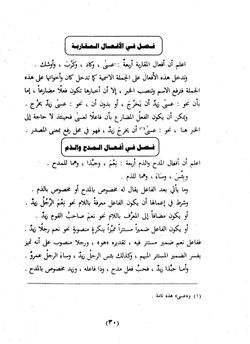 فصل في الأفعال المقاربة
اعلم أن أفعال المقاربة أربعة : عسى ، وكاد ، وكرب ، وأوشك .
وتدخل هذه الأفعال على الجملة الاسمية كما تدخل كان وأخواتها على هذه
الجملة فترفع الاسم وتنصب الخبر ، إلا أن أخبارها تكون فعلًا مضارعًا ، إما
بأن نحو : عسى زيدٌ أن يخرج ، أو بدون أن ، نحو : عسى زيدٌ يخرج .
ويمكن أن يكون الفعل المضارع بأن فاعلًا لعسى فحينئذ لا حاجة إلى
الخبر هنا ، نحو : عسى(١) أن يخرج زيدٌ ، فهو في محل رفع بمعنى المصدر .
فصل في أفعال المدح والذم
اعلم أن أفعال المدح والذم أربعة : نِعْمَ ، وحبّذا ، وهما للمدح .
وبئس ، وساء ، وهما للذم .
وما يأتي بعد الفاعل يقال له مخصوص بالمدح أو مخصوص بالذم .
وشرط في إعمالها أن يكون الفاعل معرفةً باللام نحو نعم الرجلُ زيدٌ ،
أو يكون مضافًا إلى المعرّف باللام نحو نعم صاحبُ القوم زيدٌ .
أو يكون الفاعل ضميرًا مستترًا مميّزًا بنكرة منصوبة نحو نعم رجلًا زيدٌ ،
ففاعل نعم ضمير مستتر فيه ، تقديره (هو) ، ورجلًا منصوب على أنه تمييز
لأن الضمير مبهم ، وكذلك بئس الرجل زيدٌ ، وساء الرجل عمروٌ .
وأما حبذا زيدٌ ، فحبّ فعل مدح ، وذا فاعله ، وزيد مخصوص بالمدح .
(١) وعسى هذه تامة .
(٣٠)